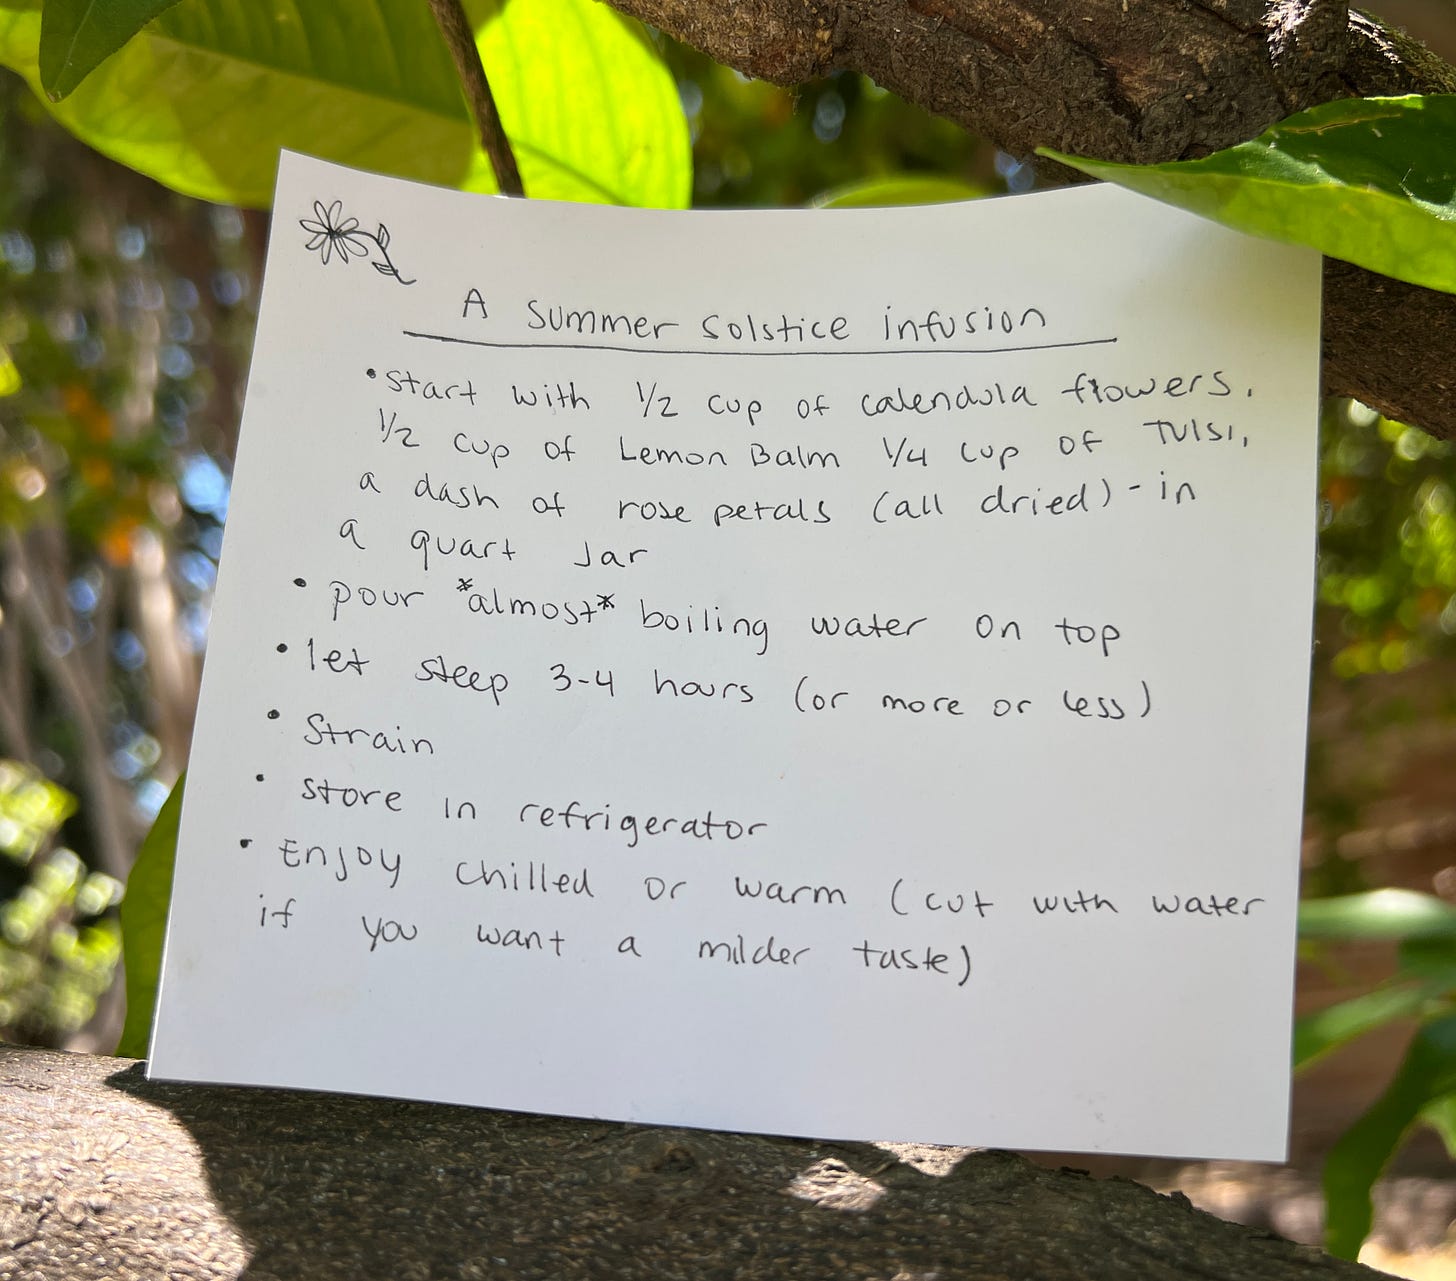 A summer solstice infusion
• start with 1/2 cup of calendula flowers.
1/2 cup of Lemon Balm 1/4 cup of TULSI,
a dash of rose petals (all dried) - in
a quart Jar
• pour *almost* boiling water on top
• let steep 3-4 hours (or more or less)
• Strain
• store in refrigerator
• Enjoy chilled or warm (cut with water
if you want a milder taste)